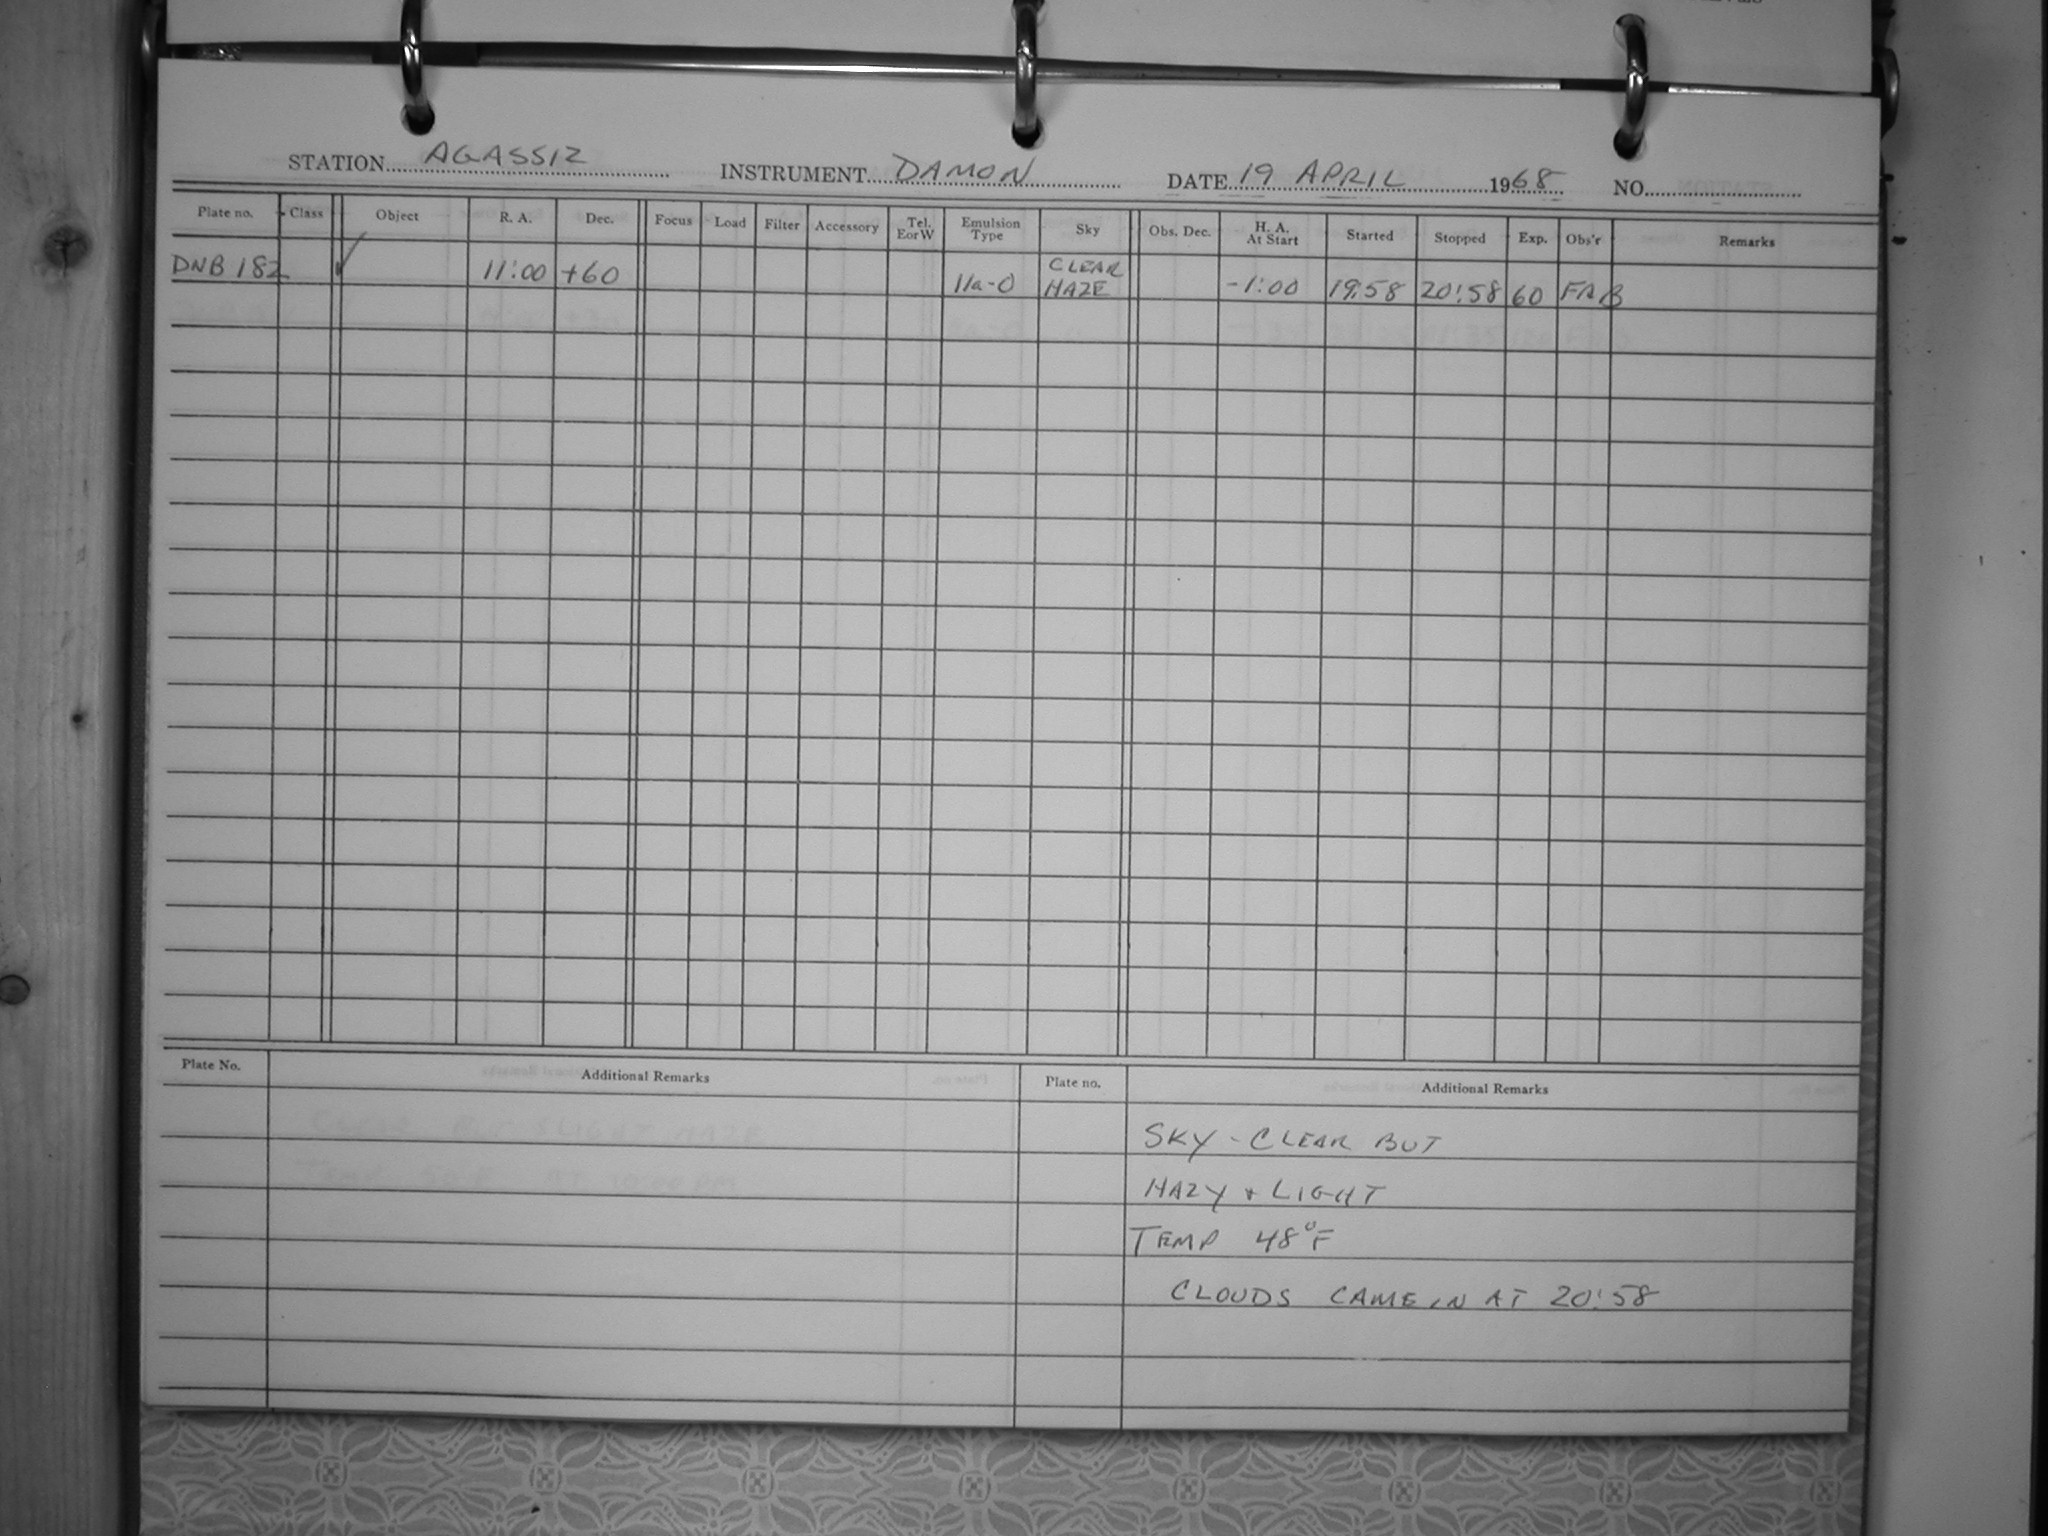 STATION AGASSIZ INSTRUMENT DAMON DATE 19 APRIL 1968 NO.
Plate no. Class Object R. A. Dec. Focus Load Filter Accessory Tel. E or W Emulsion Type Sky Obs. Dec. H. A. At Start Started Stopped Exp. Obs'r Remarks
DNB 182 ✓ 11:00 +60 11a-O CLEAR HAZE -1:00 19:58 20:58 60 FAB
Plate No. Additional Remarks Plate no. Additional Remarks
SKY - CLEAR BUT
HAZY + LIGHT
TEMP 48°F
CLOUDS CAME IN AT 20:58